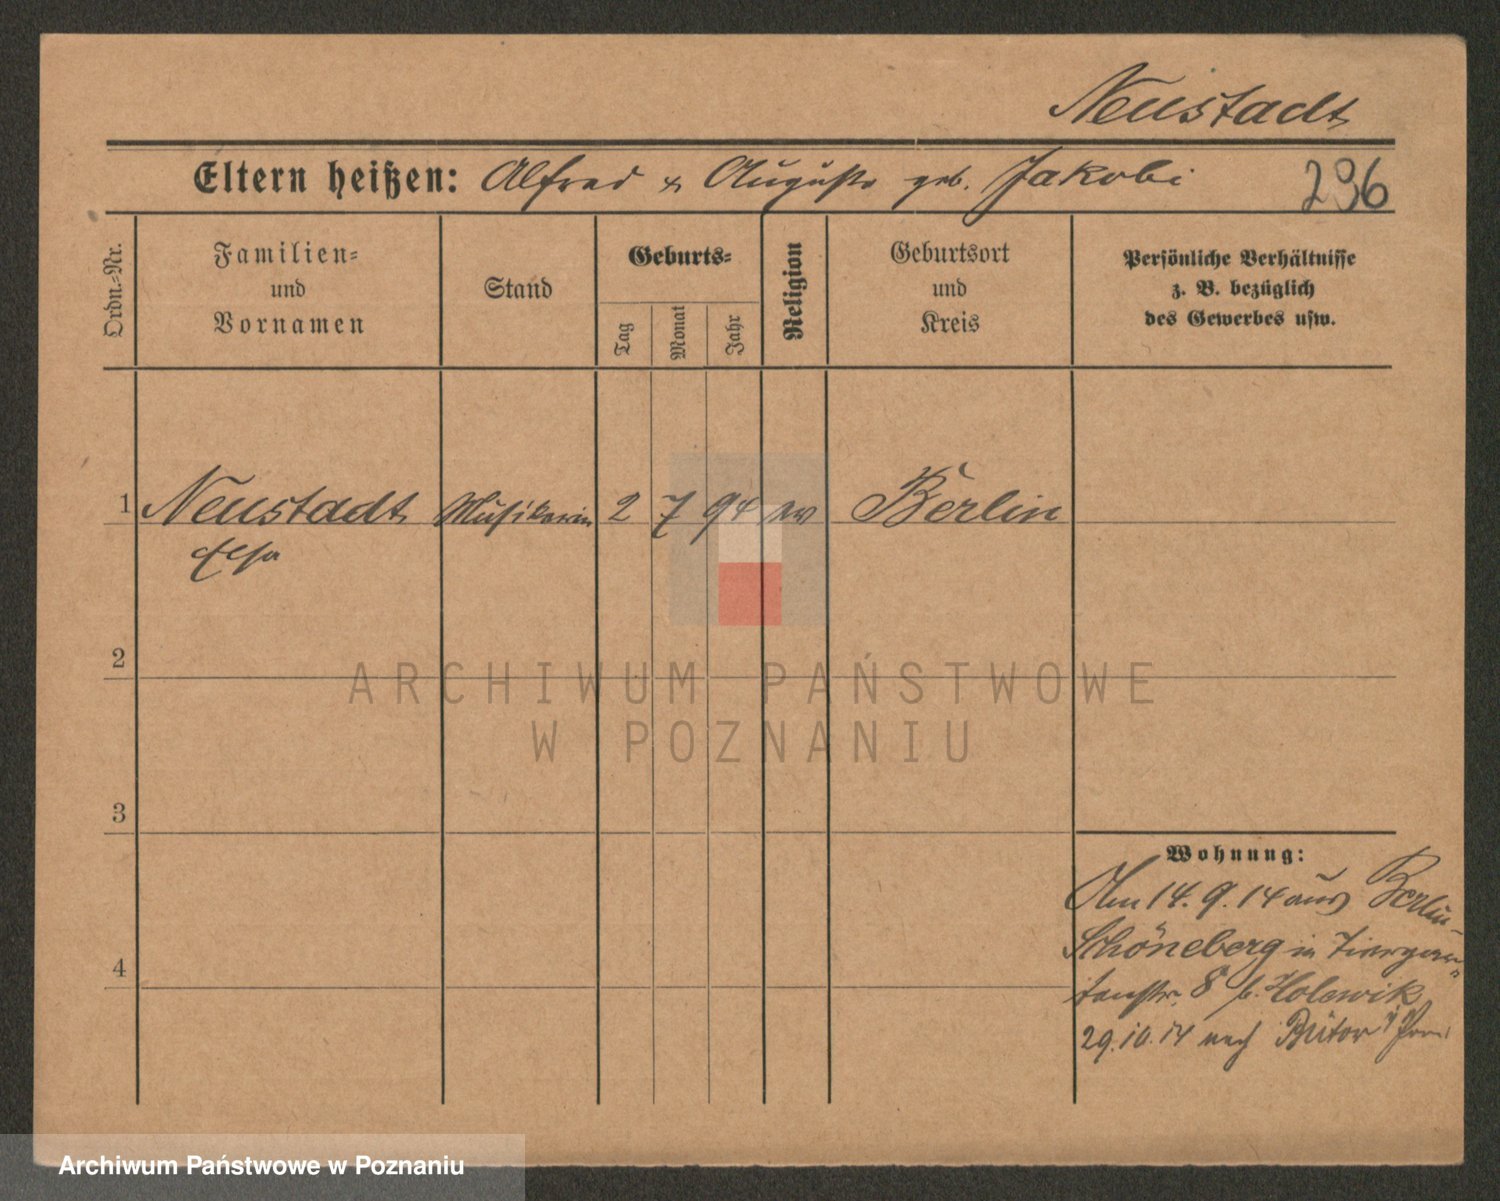 Neustadt
Eltern heißen: Alfred u Auguste geb. Jakobi
296
Ordn.-Nr.
Familien-
und
Vornamen
Stand
Geburts-
Tag
Monat
Jahr
Religion
Geburtsort
und
Kreis
Persönliche Verhältnisse
z. B. bezüglich
des Gewerbes usw.
1 Neustadt Musikerin 2 7 94 ev Berlin
Elsa
2
ARCHIWUM PAŃSTWOWE
W POZNANIU
3
Wohnung:
Am 14.9.14 aus Berlin-
Schöneberg in Tiergar-
tenstr. 8 b. Holewik
4
29.10.14 nach Bütow
Archiwum Państwowe w Poznaniu